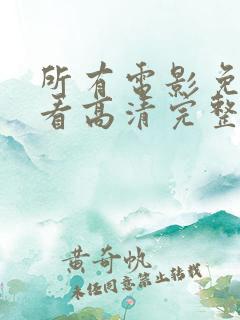 所有电影免
看高清完整
黄奇帆
未经同意禁止转载